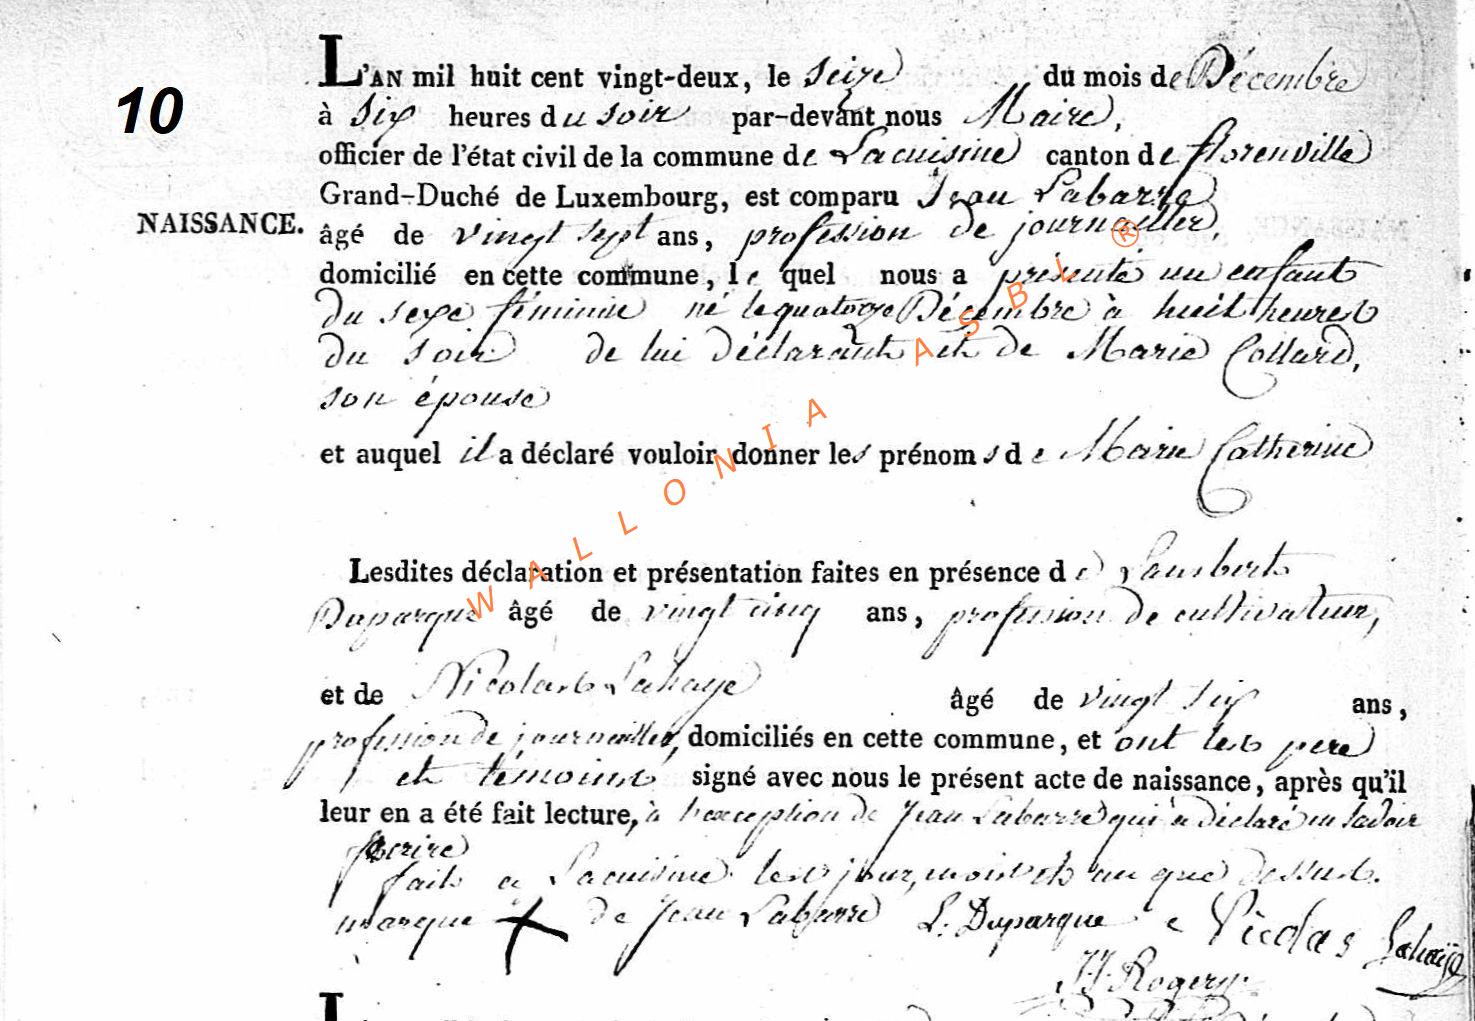 10
L'AN mil huit cent vingt-deux, le seize du mois de Décembre
à Six heures du soir par-devant nous Maire,
officier de l'état civil de la commune de Lacuisine canton de florenville
Grand-Duché de Luxembourg, est comparu Jean Labarre
NAISSANCE.
âgé de vingt sept ans, profession de journallier,
domicilié en cette commune, le quel nous a présenté un enfant
du sexe féminin né le quatorze Décembre à huit heures
du soir de lui déclarant et de Marie Collard,
son épouse
et auquel il a déclaré vouloir donner les prénoms de Marie Catherine
Lesdites déclaration et présentation faites en présence de Lambert
Duparque âgé de vingt cinq ans, profession de cultivateur,
et de Nicolas Lahaye âgé de vingt six ans,
profession de journallier, domiciliés en cette commune, et ont les pere
et témoins signé avec nous le présent acte de naissance, après qu'il
leur en a été fait lecture, à l'exception de Jean Labarre qui a déclaré ne savoir
écrire
fait a Lacuisine les jour, mois et an que dessus.
marque de Jean Labarre L. Duparque Nicolas Lahaye
WALLONIA ASBL ®